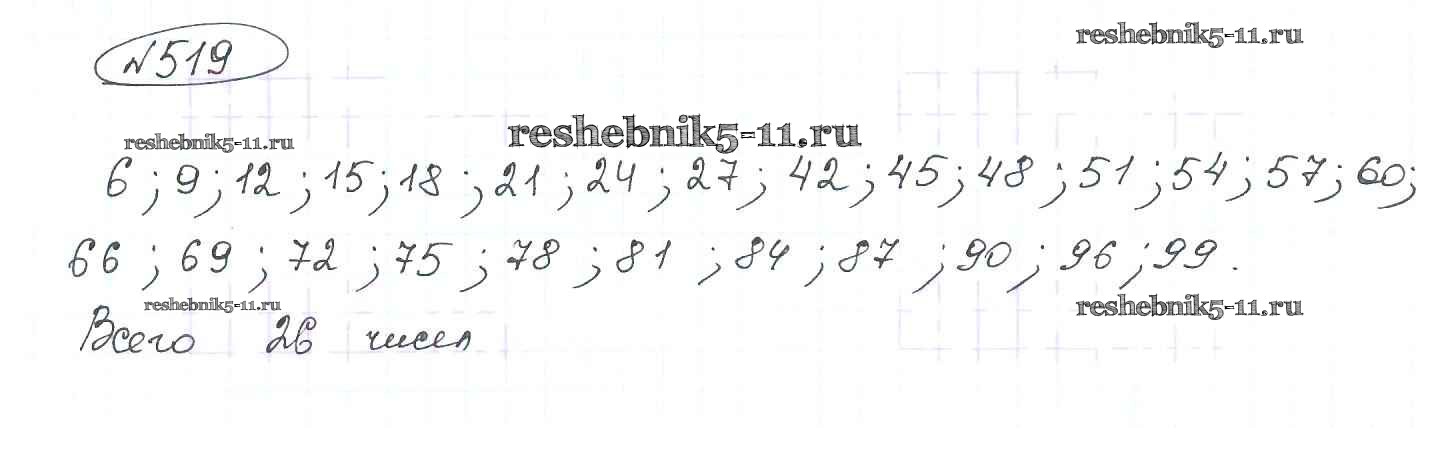 №519
reshebnik5-11.ru
reshebnik5-11.ru
reshebnik5-11.ru
6; 9; 12; 15; 18; 21; 24; 27; 42; 45; 48; 51; 54; 57; 60;
66; 69; 72; 75; 78; 81; 84; 87; 90; 96; 99.
reshebnik5-11.ru
reshebnik5-11.ru
Всего 26 чисел